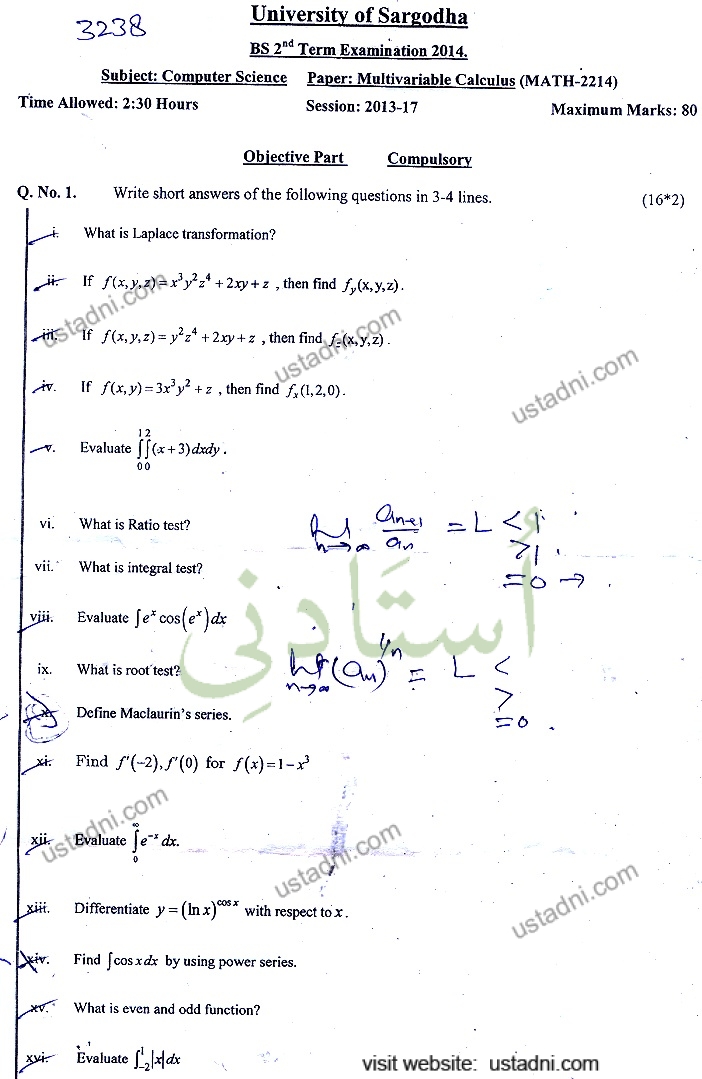 3238
University of Sargodha
BS 2nd Term Examination 2014.
Subject: Computer Science Paper: Multivariable Calculus (MATH-2214)
Time Allowed: 2:30 Hours Session: 2013-17 Maximum Marks: 80
Objective Part Compulsory
Q. No. 1. Write short answers of the following questions in 3-4 lines. (16*2)
i. What is Laplace transformation?
ii. If f(x,y,z)=x³y²z⁴+2xy+z , then find f_y(x,y,z).
iii. If f(x,y,z)=y²z⁴+2xy+z , then find f_z(x,y,z).
iv. If f(x,y)=3x³y²+z , then find f_x(1,2,0).
v. Evaluate ∫₀¹∫₀²(x+3)dxdy.
vi. What is Ratio test?
lim n→∞ aₙ₊₁/aₙ = L < 1
> 1.
=0 →.
vii. What is integral test?
viii. Evaluate ∫eˣcos(eˣ)dx
ix. What is root test?
lim n→∞ (aₙ)^1/n = L <
>
=0.
x. Define Maclaurin's series.
xi. Find f′(−2), f′(0) for f(x)=1−x³
xii. Evaluate ∫₀^∞ e⁻ˣ dx.
xiii. Differentiate y=(ln x)^cos x with respect to x.
xiv. Find ∫cos x dx by using power series.
xv. What is even and odd function?
xvi. Evaluate ∫₋₂¹|x|dx
ustadni.com
ustadni.com
ustadni.com
أُستَاذنِي
ustadni.com
ustadni.com
ustadni.com
visit website: ustadni.com